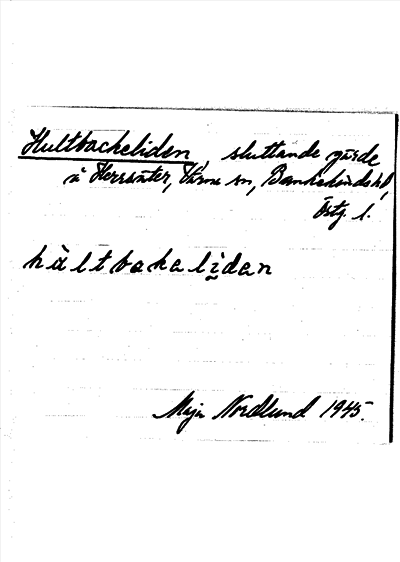 Hultbackeliden, sluttande gärde
å Herrsäter, Värna sn, Bankekinds hd,
Östg. l.
hàltbakalìdan
Maja Nordlund 1945.